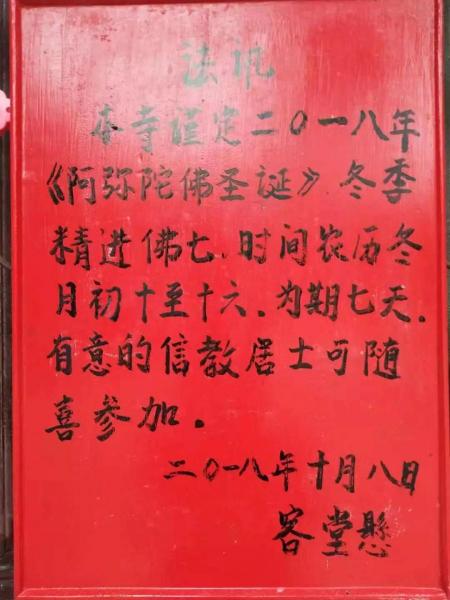 法讯
本寺谨定二〇一八年
《阿弥陀佛圣诞》冬季
精进佛七.时间农历冬
月初十至十六.为期七天.
有意的信教居士可随
喜参加.
二〇一八年十月八日
客堂懸